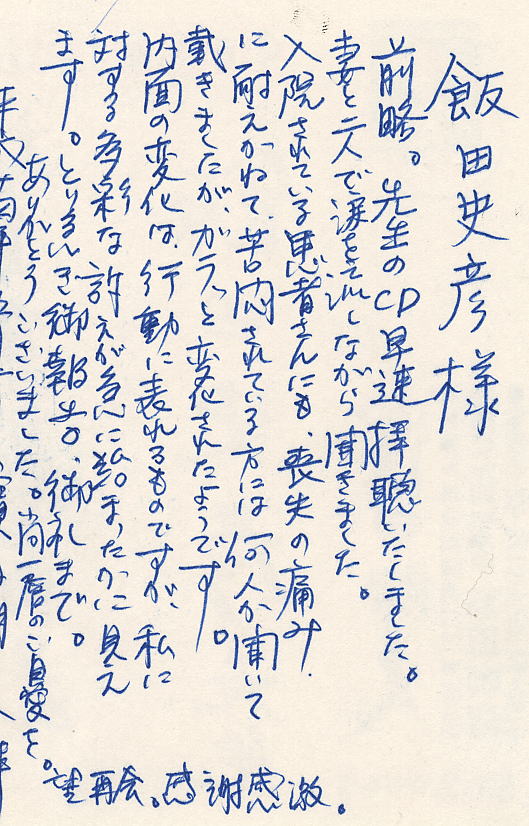 飯田史彦様
前略。先生のCD早速拝聴いたしました。
妻と二人で涙を流しながら聞きました。
入院されている患者さんにも、喪失の痛み
に耐えかねて、苦悶されている方には何人か聞いて
戴きましたが、ガラッと変化されたようです。
内面の変化は、行動に表れるものですが、私に
対する多彩な訴えが急に
見え
ます。とり急ぎ御報告、御礼まで。
ありがとうございました。尚一層のご自愛を。
望再会。感謝感激。